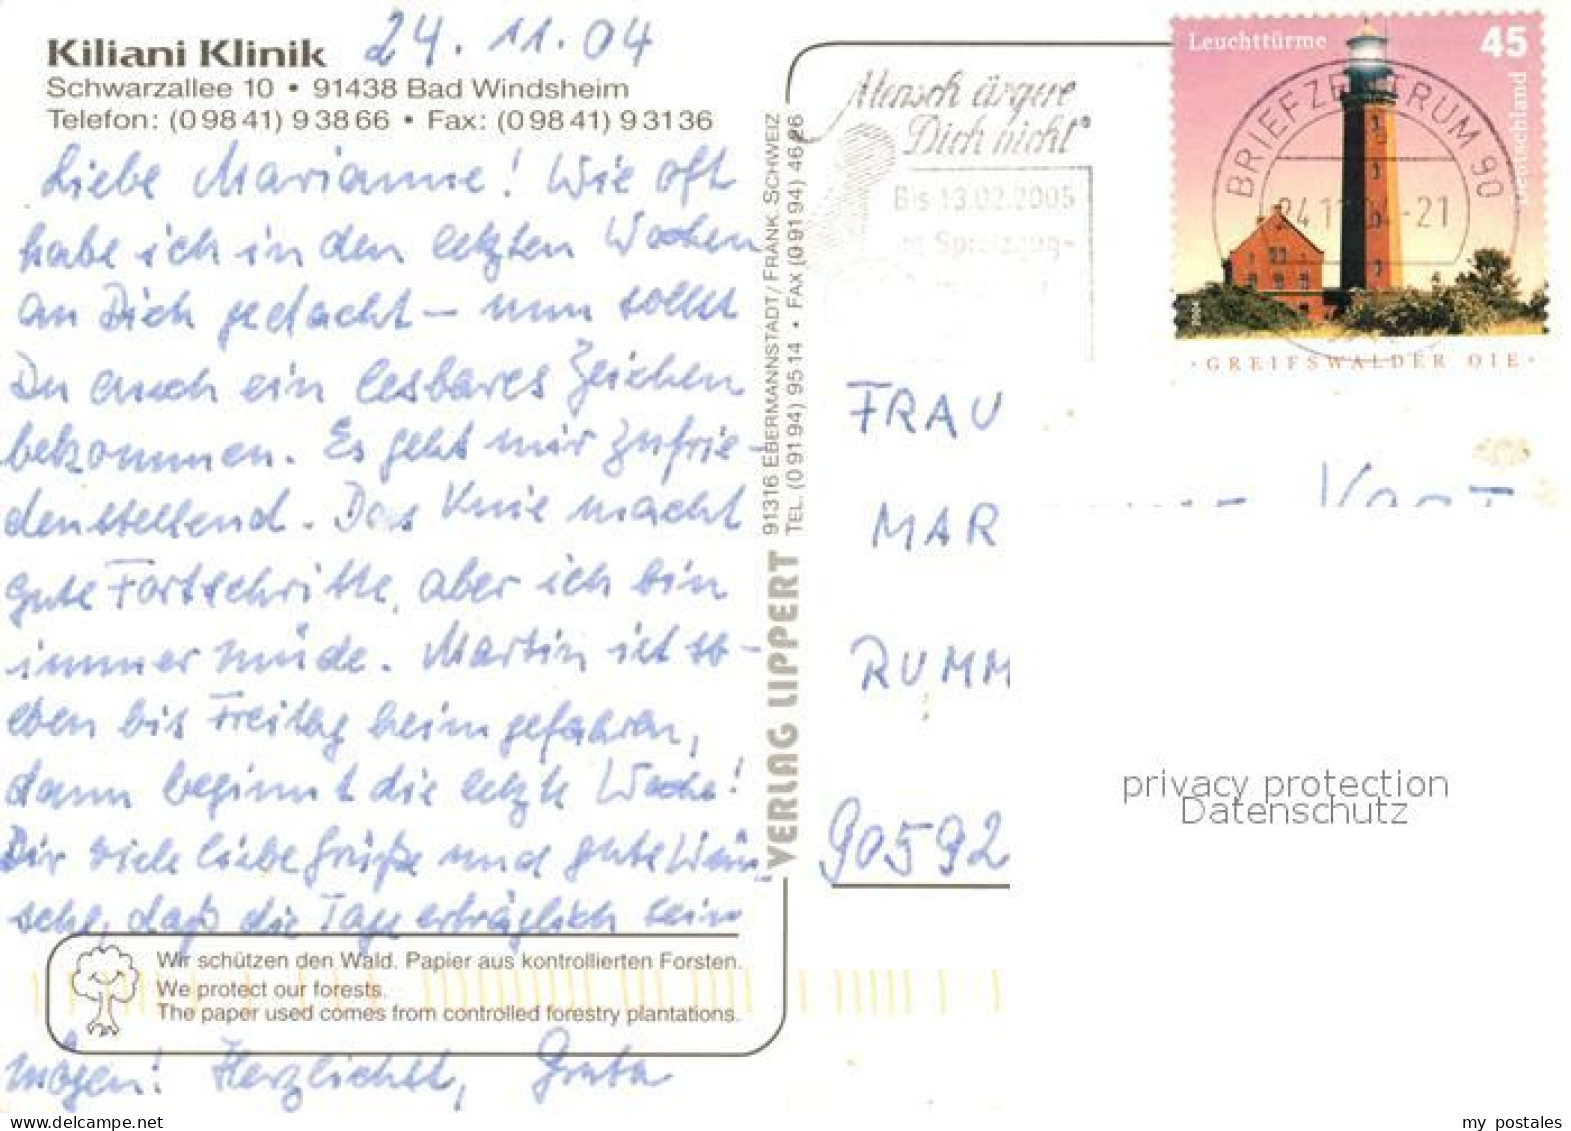 Kiliani Klinik 24.11.04
Schwarzallee 10 • 91438 Bad Windsheim
Telefon: (0 98 41) 9 38 66 • Fax: (0 98 41) 9 31 36
Liebe Marianne! Wie oft
habe ich in den letzten Wochen
an Dich gedacht – nun sollst
Du auch ein lesbares Zeichen
bekommen. Es geht mir zufrie-
denstellend. Das Knie macht
gute Fortschritte, aber ich bin
immer müde. Martin ist so-
eben bis Freitag heimgefahren,
dann beginnt die letzte Woche!
Dir viele liebe Grüße und gute Wün-
sche, daß die Tage erträglich sein
mögen! Herzlichst, Greta
Wir schützen den Wald. Papier aus kontrollierten Forsten.
We protect our forests.
The paper used comes from controlled forestry plantations.
VERLAG LIPPERT
91316 EBERMANNSTADT / FRANK. SCHWEIZ
TEL. (0 91 94) 95 14 • FAX (0 91 94) 46 26
Mensch ärgere
Dich nicht®
Bis 13.02.2005
Leuchttürme 45
Deutschland
2004
BRIEFZENTRUM 90
24.11.04-21
·GREIFSWALDER OIE·
FRAU
MAR
RUMM
90592
privacy protection
Datenschutz
my postales